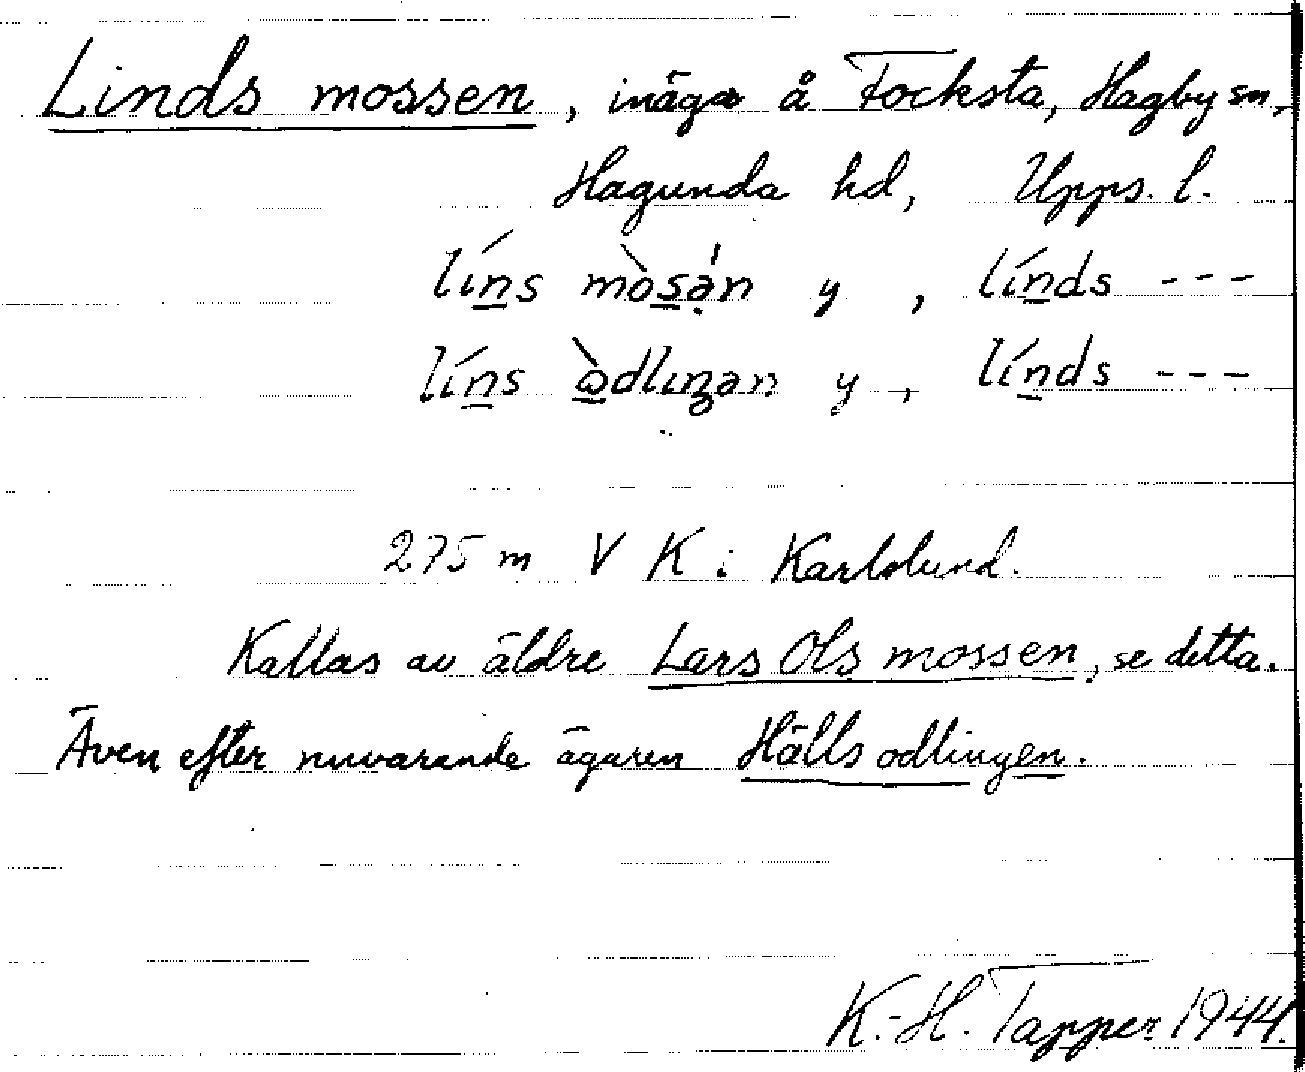 Linds mossen, inäga å Focksta, Hagby sn,
Hagunda hd, Upps. l.
líns mòsə́n y, línds ---
líns òdlıŋən y, línds ---
275 m V K i Karlslund.
Kallas av äldre Lars Ols mossen, se detta.
Även efter nuvarande ägaren Hälls odlingen.
K.-H. Tapper 1944.